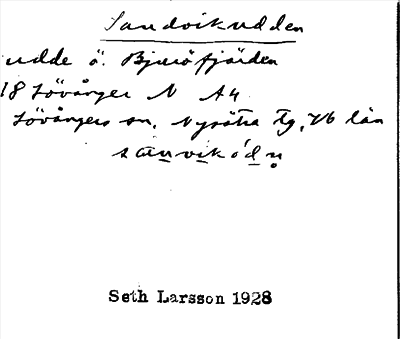 Sandvikudden
udde ö. Bjuröfjärden
18 Lövånger N A4
Lövångers sn, Nysätra tg, Vb län
sanvikódn
Seth Larsson 1928